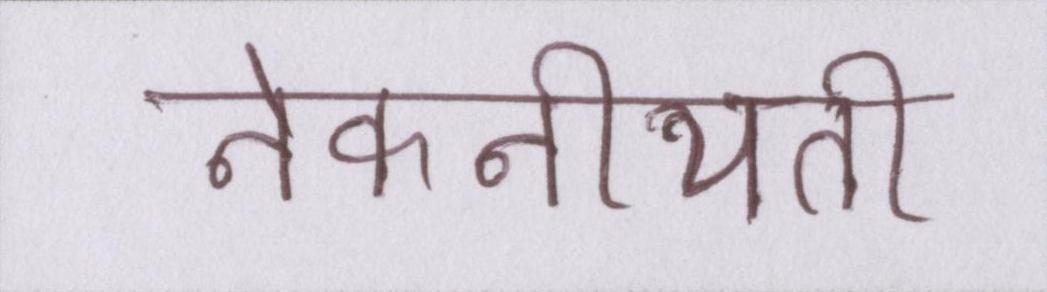 नेकनीयती